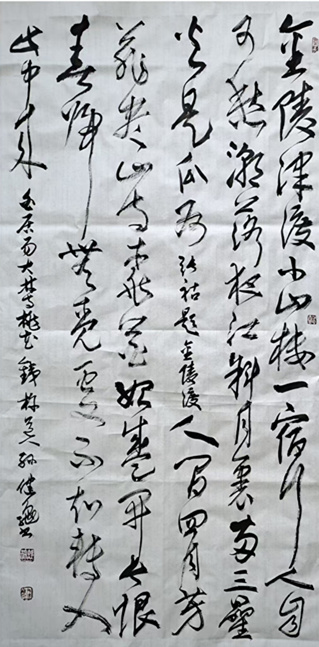 金陵津渡小山楼一宿行人自
可愁潮落夜江斜月裏两三星
火是瓜州张祜题金陵渡人间四月芳
菲尽山寺桃花始盛开长恨
春归无觅处不知转入
此中来白居易大林寺桃花